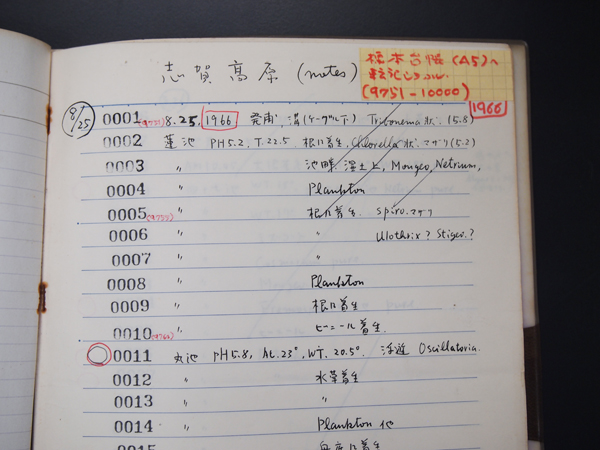 志賀高原 (notes)
標本台帳 (A5)へ
転記しつゝ
(9751-10000)
1966
8/25
0001 (9751) 8.25, 1966 発甫, 溝(ケーブル下) Tribonema状. (5.8)
0002 蓮池 PH5.2, T.22.5 根に着生, Chlorella状 (5.2)
0003 〃 池畔, 湿土上, Mougeo, Netrium,
0004 〃 Plankton
0005 (9755) 〃 根に着生. Spiro.
0006 〃 〃 Ulothrix? Stigeo.?
0007 〃 〃
0008 〃 Plankton
0009 〃 根に着生
0010 (9760) 〃 ビニール着生
0011 丸池 PH5.8, At.23°, WT. 20.5°. 浮遊 Oscillatoria.
0012 〃 水草着生
0013 〃 〃
0014 〃 Plankton 他
0015